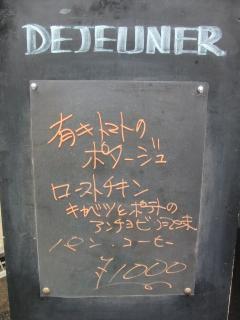 DEJEUNER
有キトマトの
ポタージュ
ローストチキン
キャベツとポテトの
アンチョビ風味
パン・コーヒー
¥1000